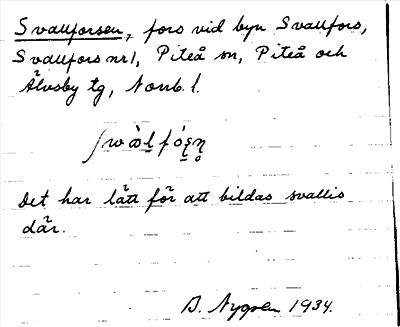 Svallforsen, fors vid byn Svallfors,
Svallfors nr 1, Piteå sn, Piteå och
Älvsby tg, Norrb. l.
Det har lätt för att bildas svallis
där.
B. Nygren 1934.